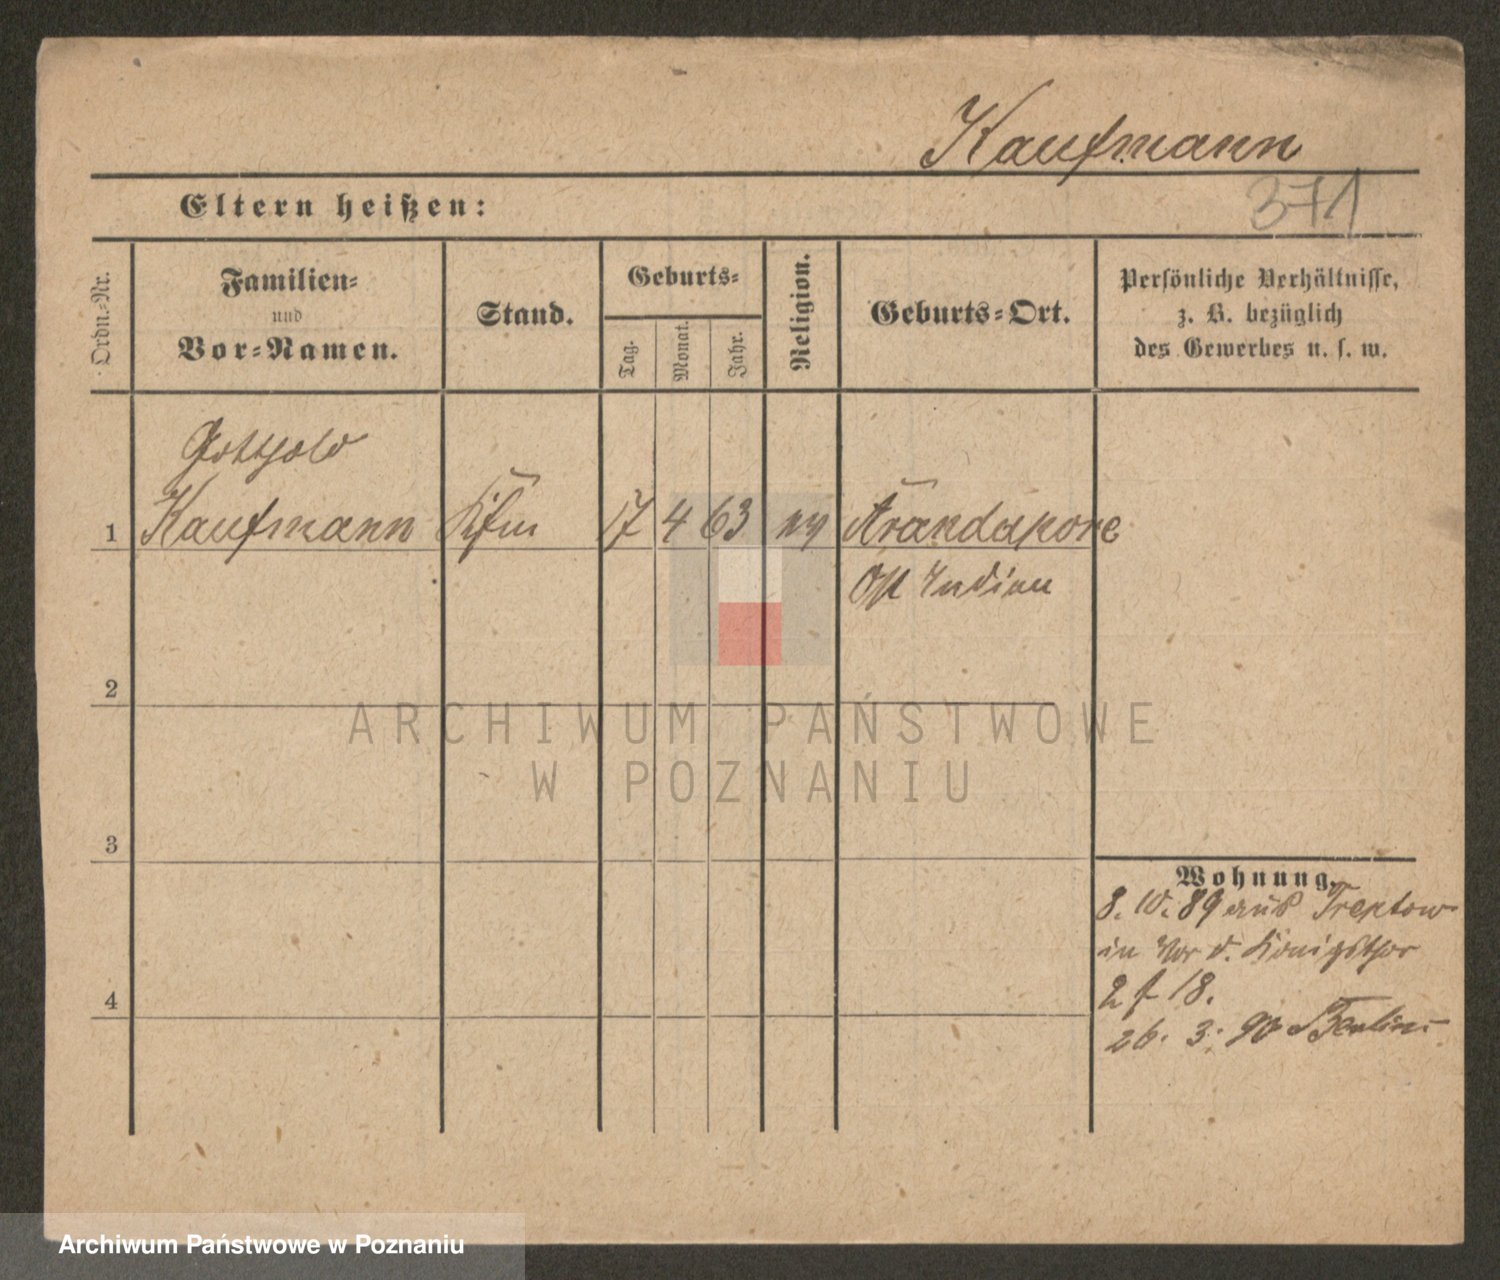 Kaufmann
371
Eltern heißen:
Ordn.-Nr.
Familien-
und
Vor-Namen.
Stand.
Geburts-
Tag.
Monat.
Jahr.
Religion.
Geburts-Ort.
Persönliche Verhältnisse,
z. B. bezüglich
des Gewerbes u. s. w.
Gotthold
1 Kaufmann Kfm 17 4 63 ev Arandapore
Ost Indien
2
ARCHIWUM PAŃSTWOWE
W POZNANIU
3
Wohnung.
8. 10. 89 aus Treptow
in Vor d. Königsthor
2 f 18.
4
26. 3. 90 Berlin
Archiwum Państwowe w Poznaniu